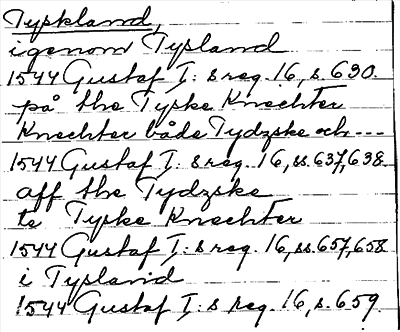 Typkland,
igenom Typland
1544 Gustaf I: s reg. 16, s. 630.
på the Typke Knechter
Knechter både Tydzske och ---
1544 Gustaf I: s reg. 16, ss. 637, 638
aff the Tydzske
te Typke Knechter
1544 Gustaf I: s reg. 16, ss. 657, 658
i Typland
1544 Gustaf I: s reg. 16, s. 659.